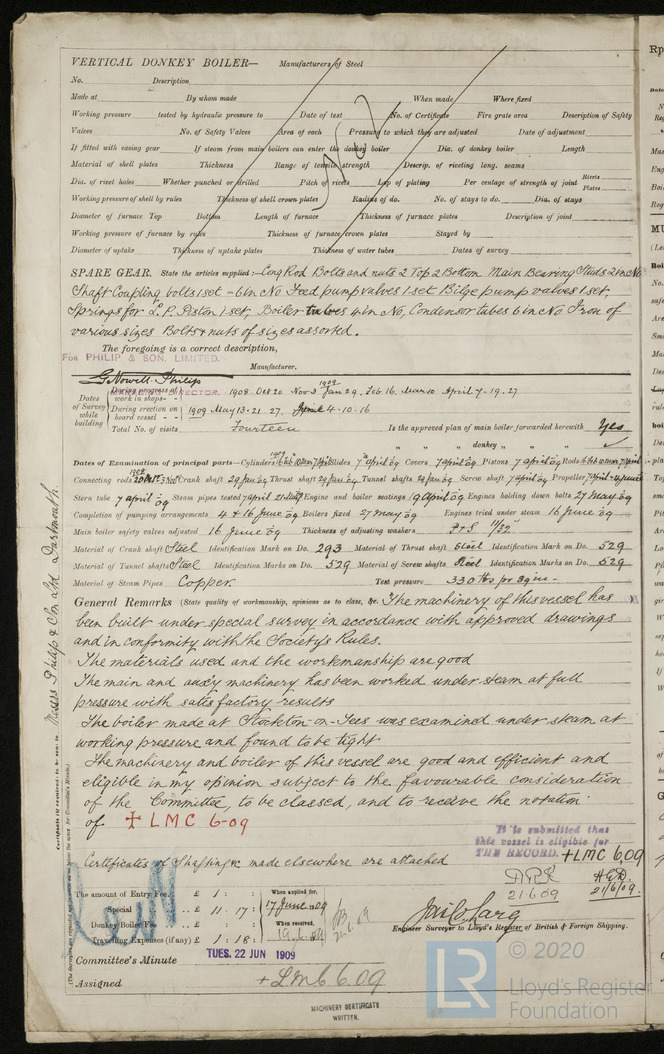 VERTICAL DONKEY BOILER— Manufacturers of Steel
No. Description
Made at By whom made When made Where fixed
Working pressure tested by hydraulic pressure to Date of test No. of Certificate Fire grate area Description of Safety
Valves No. of Safety Valves Area of each Pressure to which they are adjusted Date of adjustment
If fitted with easing gear If steam from main boilers can enter the donkey boiler Dia. of donkey boiler Length
Material of shell plates Thickness Range of tensile strength Descrip. of riveting long. seams
Dia. of rivet holes Whether punched or drilled Pitch of rivets Lap of plating Per centage of strength of joint Rivets Plates
Working pressure of shell by rules Thickness of shell crown plates Radius of do. No. of stays to do. Dia. of stays
Diameter of furnace Top Bottom Length of furnace Thickness of furnace plates Description of joint
Working pressure of furnace by rules Thickness of furnace crown plates Stayed by
Diameter of uptake Thickness of uptake plates Thickness of water tubes Dates of survey
SPARE GEAR. State the articles supplied:— Cong Rod Bolts and nuts 2 Top 2 Bottom Main Bearing Studs 2 in No
Shaft Coupling bolts 1 set – 6 in No Feed pump valves 1 set Bilge pump valves 1 set,
Springs for L.P. Piston 1 set, Boiler tubes 4 in No, Condensor tubes 6 in No Iron of
various sizes Bolts & nuts of sizes assorted.
The foregoing is a correct description,
For PHILIP & SON, LIMITED. Manufacturer.
G Nowell Philip
MANAGING DIRECTOR.
Dates of Survey while building
During progress of work in shops- - 1908 Oct 20 Nov 3 1909 Jan 29. Feb 16. Mar 10 April 7-19-27
During erection on board vessel - - 1909 May 13-21. 27. June 4-10-16
Total No. of visits Fourteen Is the approved plan of main boiler forwarded herewith Yes
" " donkey " " "
Dates of Examination of principal parts—Cylinders Slides 7 april 09 Covers 7 april 09 Pistons 7 april 09 Rods
Connecting rods Crank shaft 29 Jan 09 Thrust shaft 29 Jan 09 Tunnel shafts Screw shaft 7 april 09 Propeller
Stern tube 7 april 09 Steam pipes tested Engine and boiler seatings 19 april 09 Engines holding down bolts 27 may 09
Completion of pumping arrangements 4 & 16 June 09 Boilers fixed 27 may 09 Engines tried under steam 16 June 09
Main boiler safety valves adjusted 16 June 09 Thickness of adjusting washers P & S 11/32"
Material of Crank shaft Steel Identification Mark on Do. 293 Material of Thrust shaft Steel Identification Mark on Do. 529
Material of Tunnel shafts Steel Identification Marks on Do. 529 Material of Screw shafts Steel Identification Marks on Do. 529
Material of Steam Pipes Copper. Test pressure 330 lbs pr sq in –
General Remarks (State quality of workmanship, opinions as to class, &c. The machinery of this vessel has
been built under special survey in accordance with approved drawings
and in conformity with the Society's Rules.
The materials used and the workmanship are good
The main and auxy machinery has been worked under steam at full
pressure with satisfactory results
The boiler made at Stockton-on-Tees was examined under steam at
working pressure and found to be tight
The machinery and boiler of this vessel are good and efficient and
eligible in my opinion subject to the favourable consideration
of the Committee, to be classed, and to receive the notation
of + LMC 6-09
It is submitted that
this vessel is eligible for
THE RECORD. + LMC 6.09
Certificates of Shafting &c made elsewhere are attached
21.6.09
21/6/09.
The amount of Entry Fee £ 1 : : When applied for.
Special £ 11 : 17 : 17 June 09
Donkey Boiler Fee £ : : When received.
Travelling Expenses (if any) £ 1 : 18 : 19.6.09 21.6.09
Engineer Surveyor to Lloyd's Register of British & Foreign Shipping.
Committee's Minute TUES. 22 JUN 1909
Assigned + LMC 6.09
MACHINERY CERTIFICATE
WRITTEN.
Messrs Philip & Son Ltd Dartmouth
© 2020
LR
Lloyd's Register
Foundation